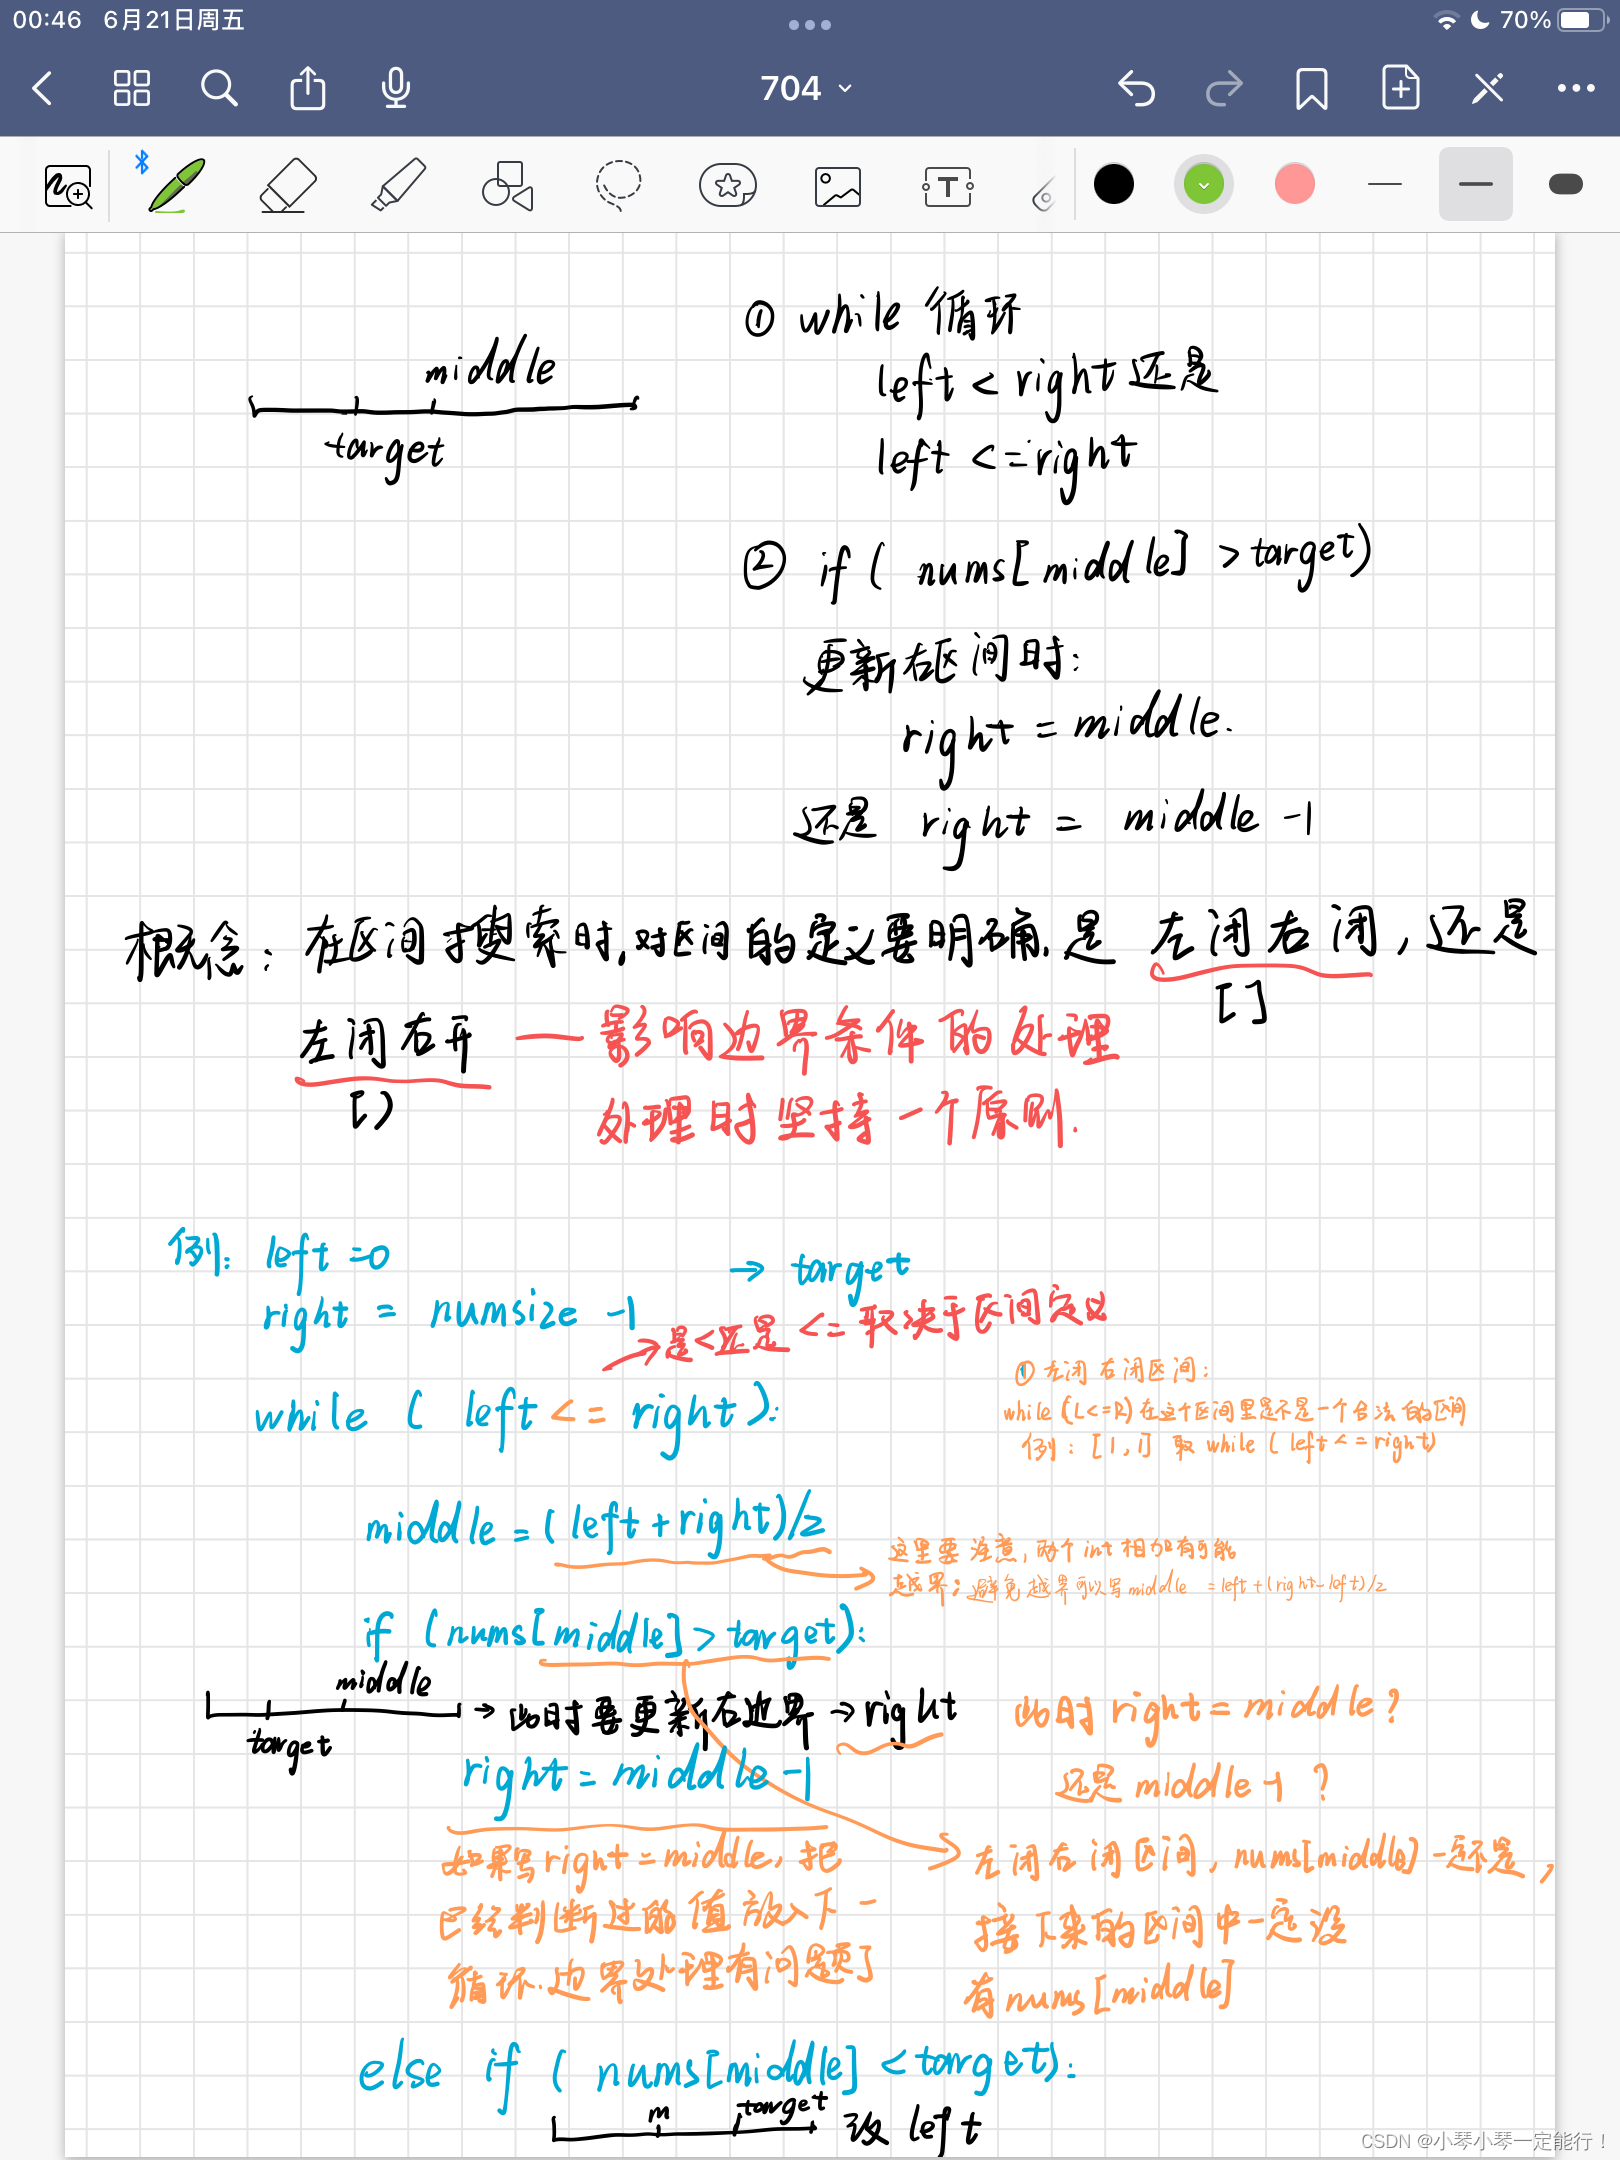 00:46 6月21日周五
70%
704
T
① while 循环
left < right 还是
left <= right
middle
target
② if ( nums[middle] > target)
更新右区间时:
right = middle.
还是 right = middle -1
概念: 在区间搜索时,对区间的定义要明确.是 左闭右闭, 还是
[]
左闭右开 — 影响边界条件的处理
[)
处理时坚持一个原则.
例: left =0
→ target
right = numsize -1
→是<还是 <= 取决于区间定义
while ( left <= right ):
① 左闭右闭区间:
while (L<=R) 在这个区间里是不是一个合法的区间
例: [1,1] 取 while ( left <= right)
middle = (left+right)/2
这里要注意,两个int相加有可能
越界; 避免越界可以写middle = left+(right-left)/2
if (nums[middle] > target):
middle
target
→ 此时要更新右边界 → right
此时right = middle?
right = middle -1
还是 middle -1 ?
如果写right = middle, 把
已经判断过的值放入下一
循环.边界处理有问题了
左闭右闭区间, nums[middle] 一定不是,
接下来的区间中一定没
有nums[middle]
else if ( nums[middle] < target):
m
target
改 left
CSDN @小琴小琴一定能行!